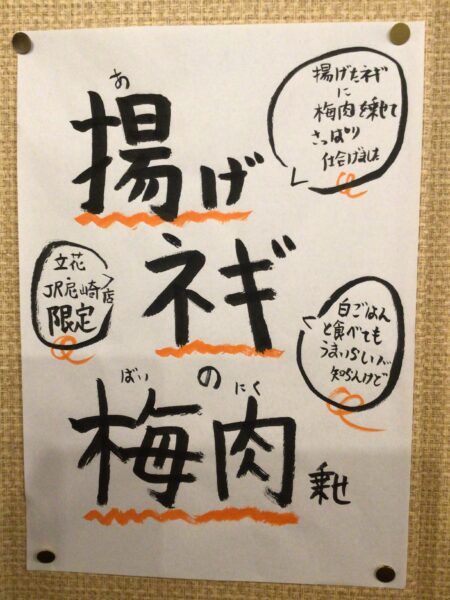 揚げたネギ
に
梅肉を乗せて
さっぱり
仕合げました
あ
揚げ
ネギ
の
ばい にく
梅肉乗せ
立花
・
JR尼崎店
限定
白ごはん
と食べても
うまいらしいが
知らんけど